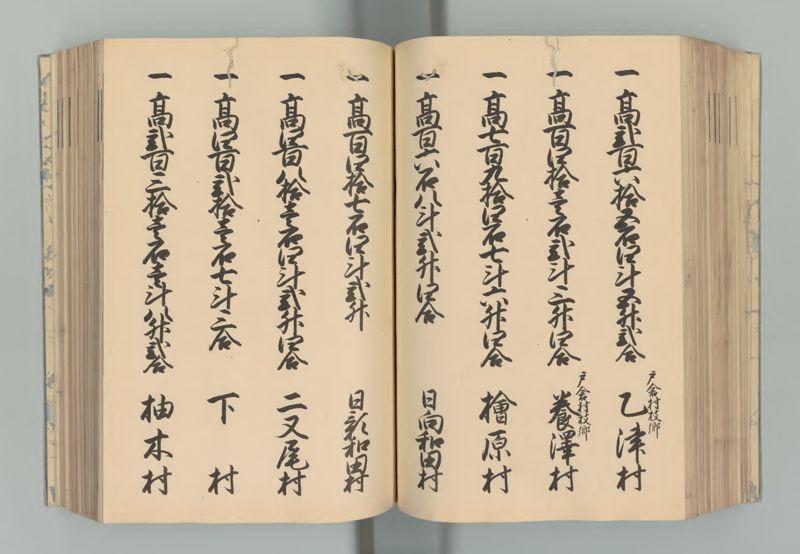 一 高弐百六拾五石四斗五升弐合 戸倉村枝郷 乙津村
一 高百四拾壱石弐斗三升四合 戸倉村枝郷 養澤村
一 高七百九拾四石七斗六升四合 檜原村
一 高百六石八斗弐升四合 日向和田村
一 高百四拾七石四斗弐升 日影和田村
一 高四百八拾壱石四斗弐升四合 二又尾村
一 高四百弐拾壱石七斗三合 下村
一 高弐百三拾壱石壱斗八升弐合 柚木村